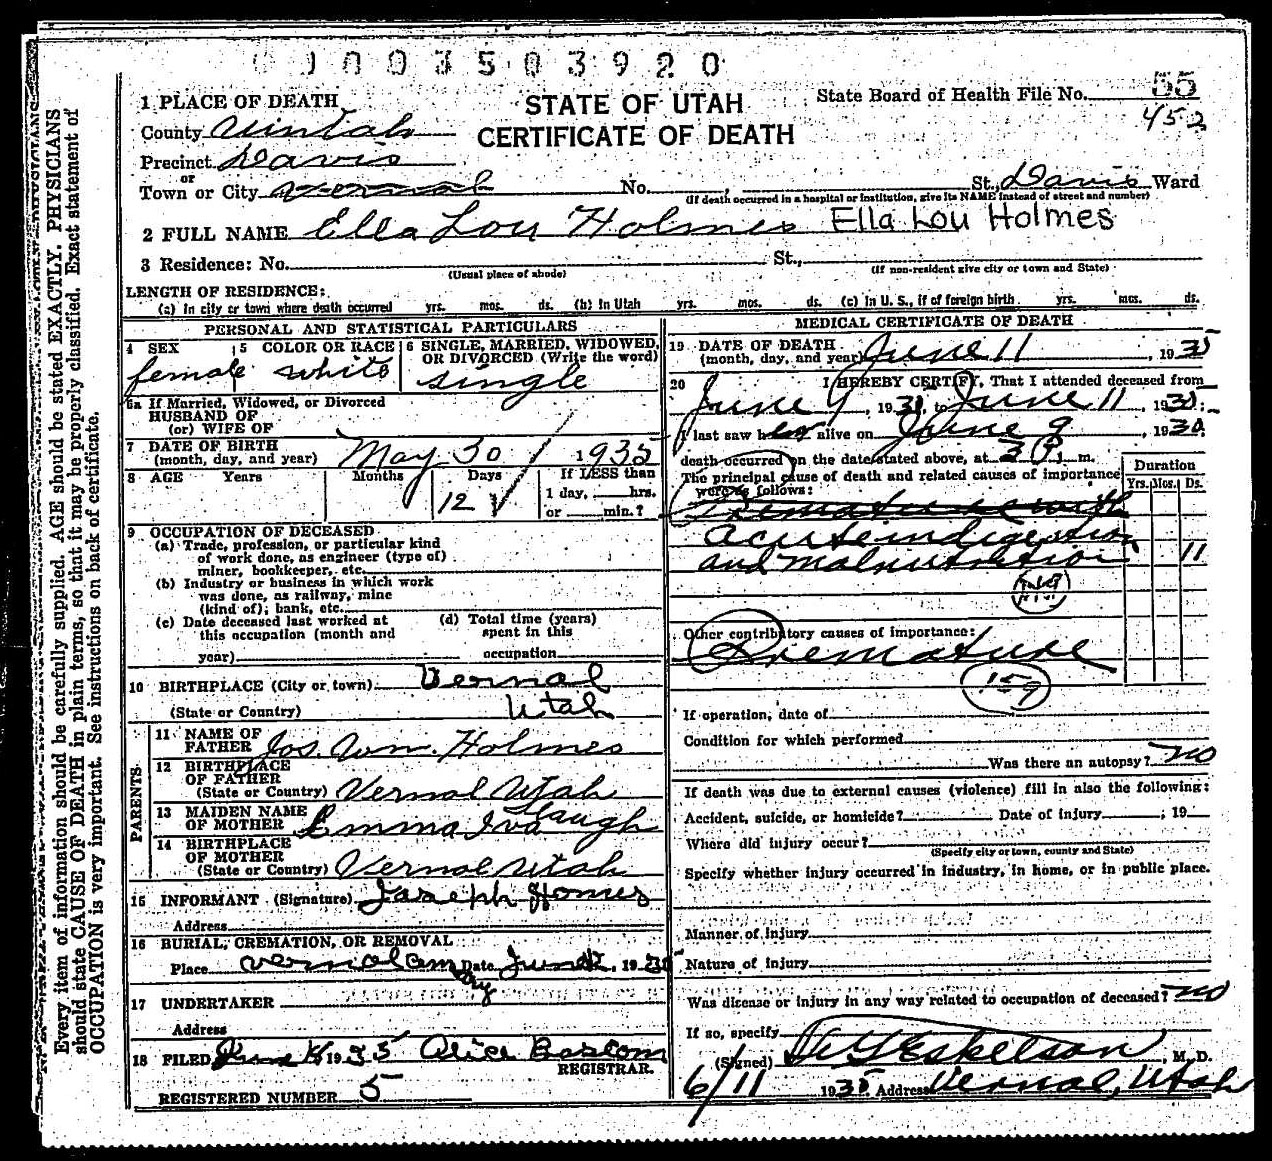 1003503920
STATE OF UTAH
CERTIFICATE OF DEATH
State Board of Health File No. 55
452
1 PLACE OF DEATH
County Uintah
Precinct Davis
or
Town or City Vernal No. , St., Davis Ward
(If death occurred in a hospital or institution, give its NAME instead of street and number)
2 FULL NAME Ella Lou Holmes Ella Lou Holmes
3 Residence: No. St.,
(Usual place of abode) (If non-resident give city or town and State)
LENGTH OF RESIDENCE:
(a) In city or town where death occurred yrs. mos. ds. (b) In Utah yrs. mos. ds. (c) In U. S., if of foreign birth. yrs. mos. ds.
PERSONAL AND STATISTICAL PARTICULARS
4 SEX female
5 COLOR OR RACE white
6 SINGLE, MARRIED, WIDOWED, OR DIVORCED (Write the word) single
6a If Married, Widowed, or Divorced
HUSBAND OF
(or) WIFE OF
7 DATE OF BIRTH
(month, day, and year) May 30 1935
8 AGE Years Months Days If LESS than
12 1 day, hrs.
or min.?
9 OCCUPATION OF DECEASED
(a) Trade, profession, or particular kind
of work done, as engineer (type of)
miner, bookkeeper, etc.
(b) Industry or business in which work
was done, as railway, mine
(kind of); bank, etc.
(c) Date deceased last worked at
this occupation (month and
year)
(d) Total time (years)
spent in this
occupation
10 BIRTHPLACE (City or town) Vernal
(State or Country) Utah
PARENTS
11 NAME OF
FATHER Jos. Wm. Holmes
12 BIRTHPLACE
OF FATHER
(State or Country) Vernal Utah
13 MAIDEN NAME
OF MOTHER Emma Iva Slaugh
14 BIRTHPLACE
OF MOTHER
(State or Country) Vernal Utah
15 INFORMANT (Signature) Joseph Homes
Address
16 BURIAL, CREMATION, OR REMOVAL
Place Vernal Date June 12, 1935
17 UNDERTAKER
Address
18 FILED June 1935 Alice Bascom
REGISTRAR.
REGISTERED NUMBER 5
MEDICAL CERTIFICATE OF DEATH
19 DATE OF DEATH
(month, day, and year) June 11, 1935
20 I HEREBY CERTIFY, That I attended deceased from
June 9, 1935, to June 11, 1935.
I last saw her alive on June 9, 1935,
death occurred on the date stated above, at 3 P. m.
The principal cause of death and related causes of importance
were as follows: Duration
Yrs. Mos. Ds.
Premature with
acute indigestion
and malnutrition 11
Other contributory causes of importance:
Premature
159
If operation, date of
Condition for which performed
Was there an autopsy? no
If death was due to external causes (violence) fill in also the following:
Accident, suicide, or homicide? Date of injury ; 19
Where did injury occur?
(Specify city or town, county and State)
Specify whether injury occurred in industry, in home, or in public place.
Manner of injury
Nature of injury
Was disease or injury in any way related to occupation of deceased? no
If so, specify
(Signed) Eskelson, M. D.
6/11 1935 Address Vernal, Utah
Every item of information should be carefully supplied. AGE should be stated EXACTLY. PHYSICIANS
should state CAUSE OF DEATH in plain terms, so that it may be properly classified. Exact statement of
OCCUPATION is very important. See instructions on back of certificate.